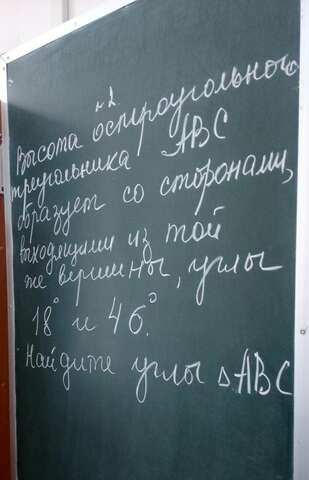 н2
Высота остроугольного
треугольника ABC
образует со сторонами,
выходящими из той
же вершины, углы
18° и 46°.
Найдите углы △ABC